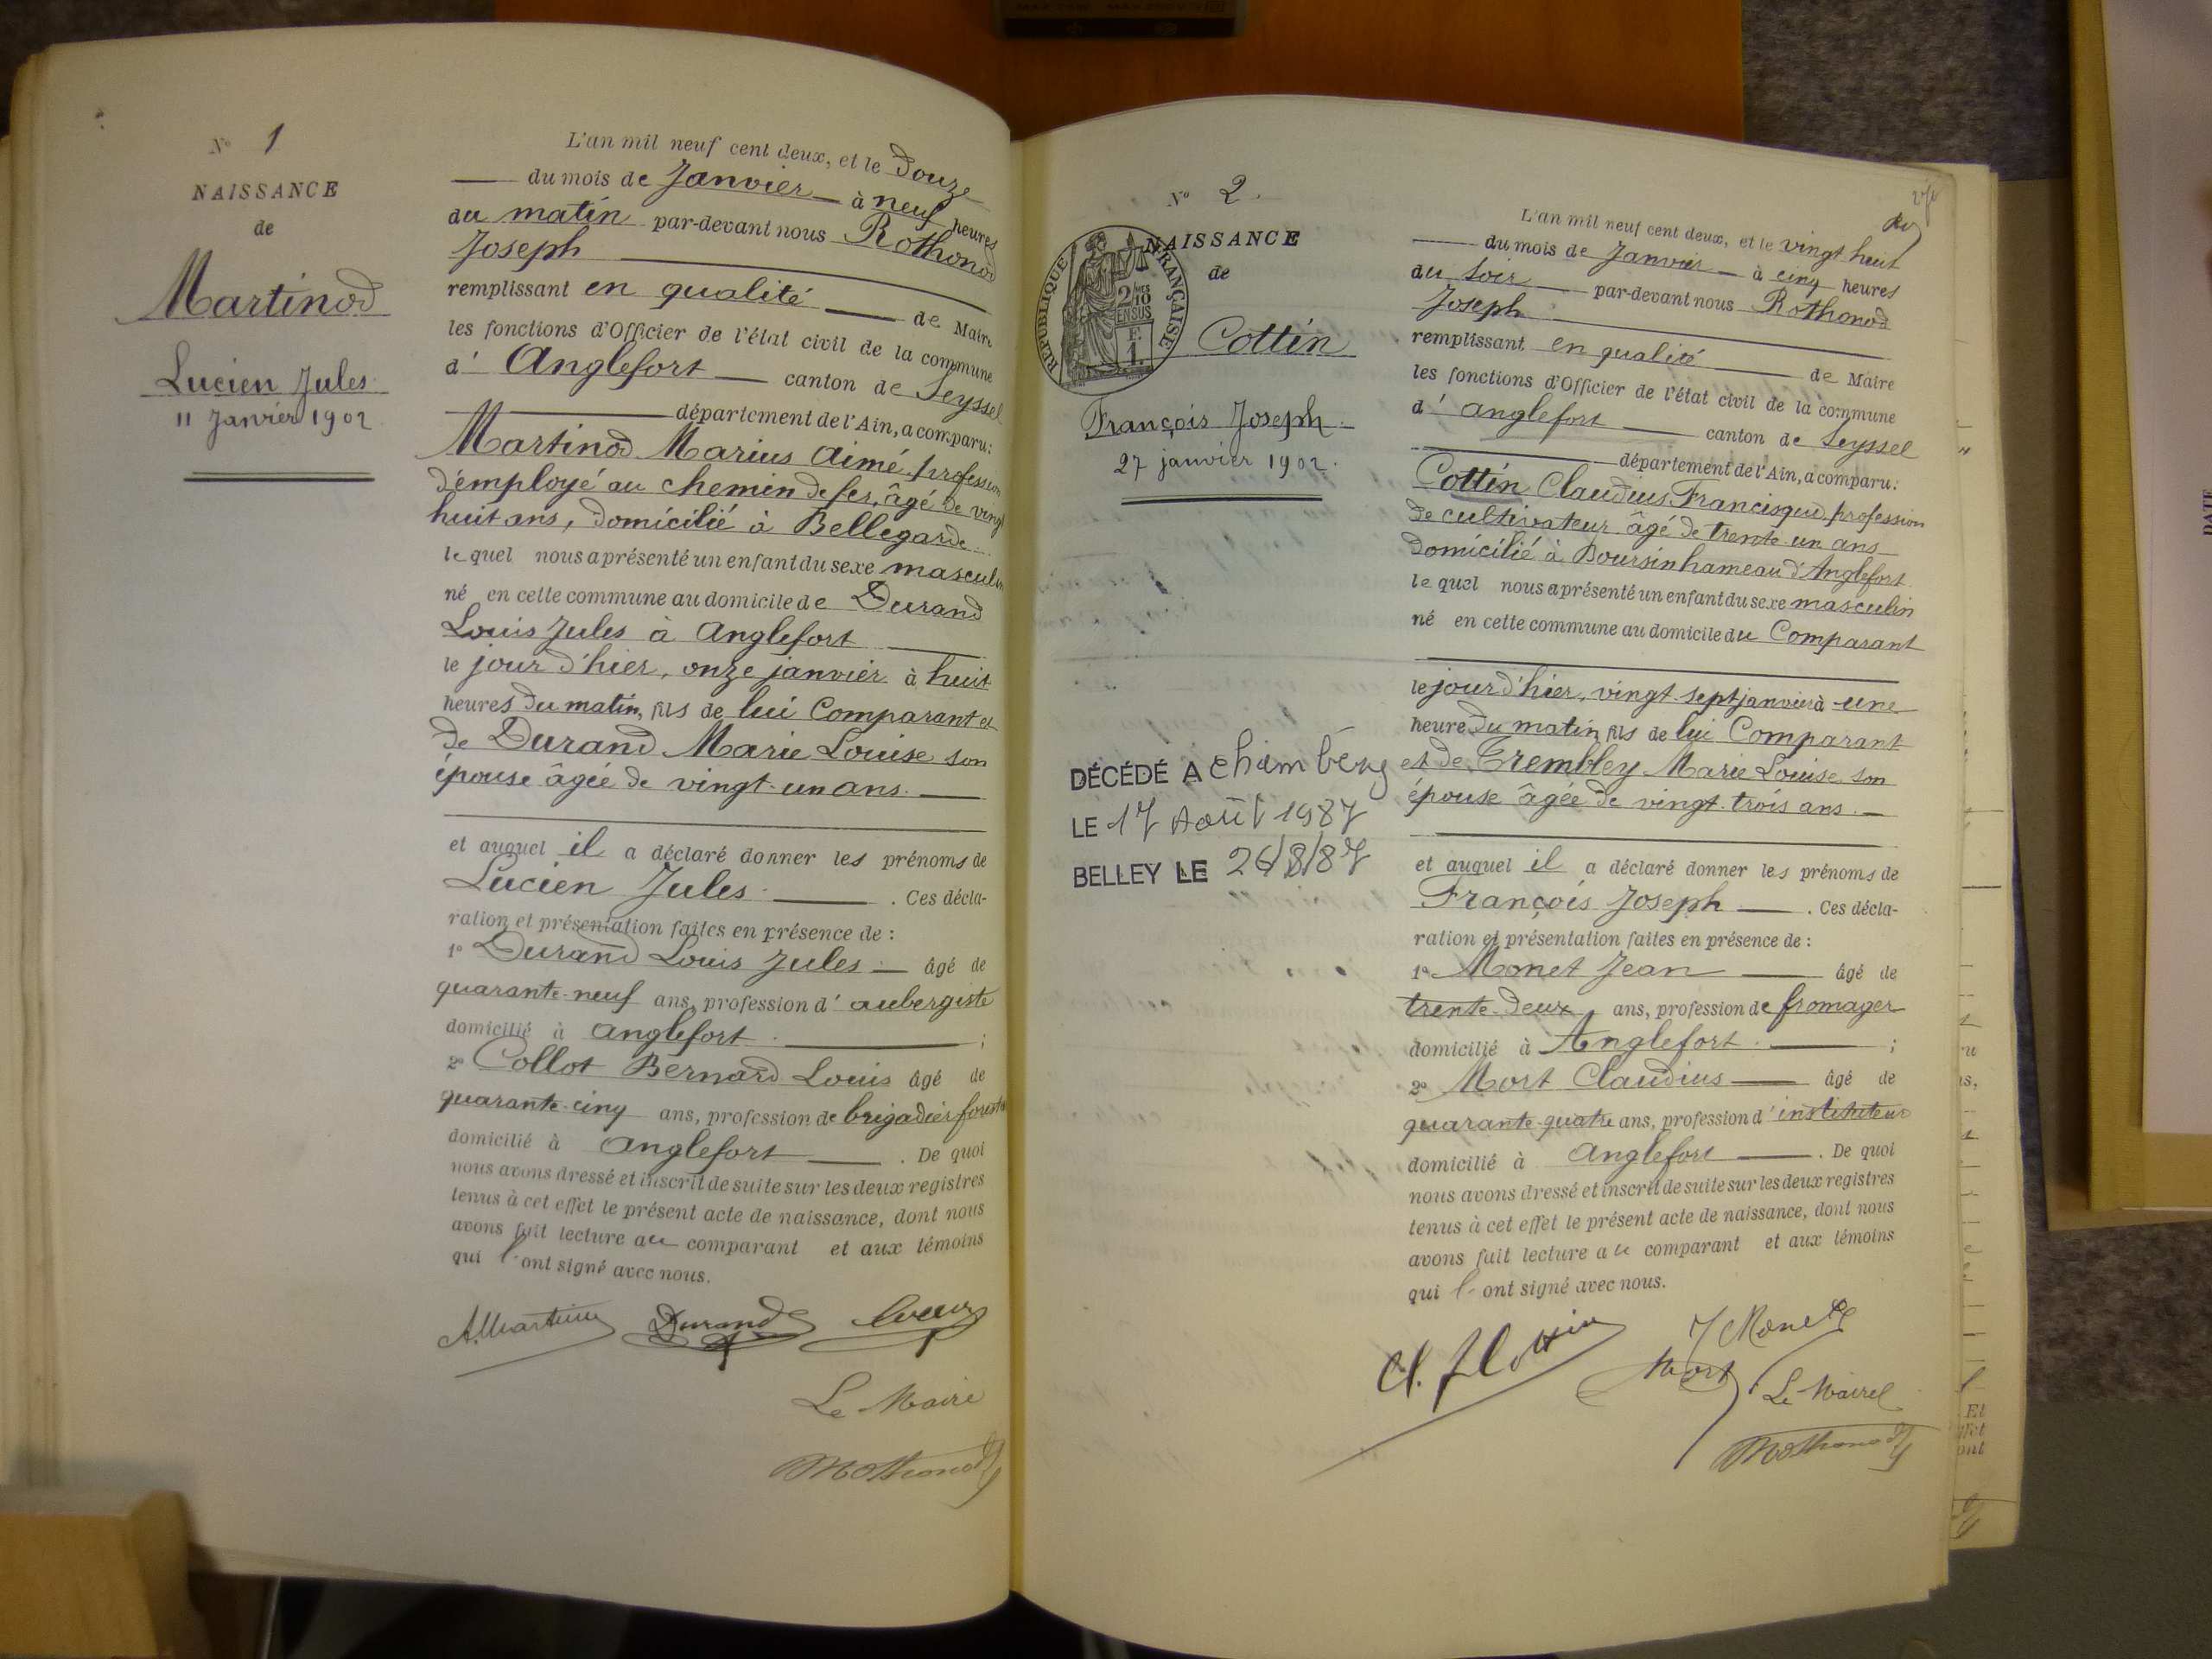 N° 1
NAISSANCE
de
Martinod
Lucien Jules
11 Janvier 1902
L'an mil neuf cent deux, et le Douze
du mois de Janvier à neuf heures
du matin par-devant nous Rothonod
Joseph
remplissant en qualité de Maire
les fonctions d'Officier de l'état civil de la commune
d' Anglefort canton de Seyssel
département de l'Ain, a comparu:
Martinod Marius Aimé, profession
d'employé au chemin de fer, âgé de vingt
huit ans, domicilié à Bellegarde
lequel nous a présenté un enfant du sexe masculin
né en cette commune au domicile de Durand
Louis Jules à Anglefort
le jour d'hier, onze janvier à huit
heures du matin, fils de lui Comparant et
de Durand Marie Louise son
épouse âgée de vingt-un ans.
et auquel il a déclaré donner les prénoms de
Lucien Jules. Ces décla-
ration et présentation faites en présence de :
1° Durand Louis Jules âgé de
quarante-neuf ans, profession d' aubergiste
domicilié à Anglefort ;
2° Collot Bernard Louis âgé de
quarante-cinq ans, profession de brigadier forestier
domicilié à Anglefort. De quoi
nous avons dressé et inscrit de suite sur les deux registres
tenus à cet effet le présent acte de naissance, dont nous
avons fait lecture au comparant et aux témoins
qui l'ont signé avec nous.
A. Martinod Durand
Le Maire
Rothonod
N° 2.
NAISSANCE
de
RÉPUBLIQUE FRANÇAISE
2/10 MES
EN SUS
E.
1.
Cottin
François Joseph.
27 janvier 1902.
DÉCÉDÉ A Chambéry
LE 17 Août 1987
BELLEY LE 26/8/87
L'an mil neuf cent deux, et le vingt huit
du mois de Janvier à cinq heures
du soir par-devant nous Rothonod
Joseph
remplissant en qualité de Maire
les fonctions d'Officier de l'état civil de la commune
d' Anglefort canton de Seyssel
département de l'Ain, a comparu:
Cottin Claudius Francisque, profession
de cultivateur âgé de trente-un ans
domicilié à Boursin hameau d'Anglefort
lequel nous a présenté un enfant du sexe masculin
né en cette commune au domicile du Comparant
le jour d'hier, vingt-sept janvier à une
heure du matin, fils de lui Comparant
et de Trembley Marie Louise son
épouse âgée de vingt-trois ans.
et auquel il a déclaré donner les prénoms de
François Joseph. Ces décla-
ration et présentation faites en présence de :
1° Monet Jean âgé de
trente-deux ans, profession de fromager
domicilié à Anglefort. ;
2° Mort Claudius âgé de
quarante-quatre ans, profession d'instituteur
domicilié à Anglefort. De quoi
nous avons dressé et inscrit de suite sur les deux registres
tenus à cet effet le présent acte de naissance, dont nous
avons fait lecture au comparant et aux témoins
qui l'ont signé avec nous.
Cl. F. Cottin J Monet
Mort Le Maire
Rothonod
Et
ont
DATE